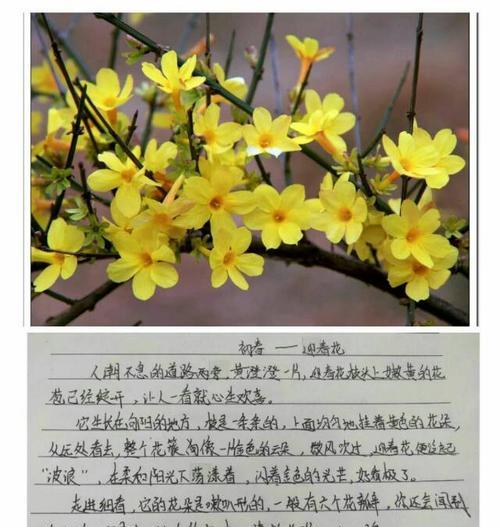 初春——迎春花
人潮不息的道路两旁，黄澄澄一片，迎春花枝头上嫩黄的花
苞已经绽开，让人一看就心生欢喜。
它生长在向阳的地方，枝是一条条的，上面均匀地挂着黄色的花朵，
从远处看去，整个花簇淘像一片金色的云朵，微风吹过，迎春花
"波浪"，在柔和阳光下荡漾着，闪着金色的光芒，好看极了。
走进细看，它的花朵是喇叭形的，一般有六个花瓣，你还会闻到